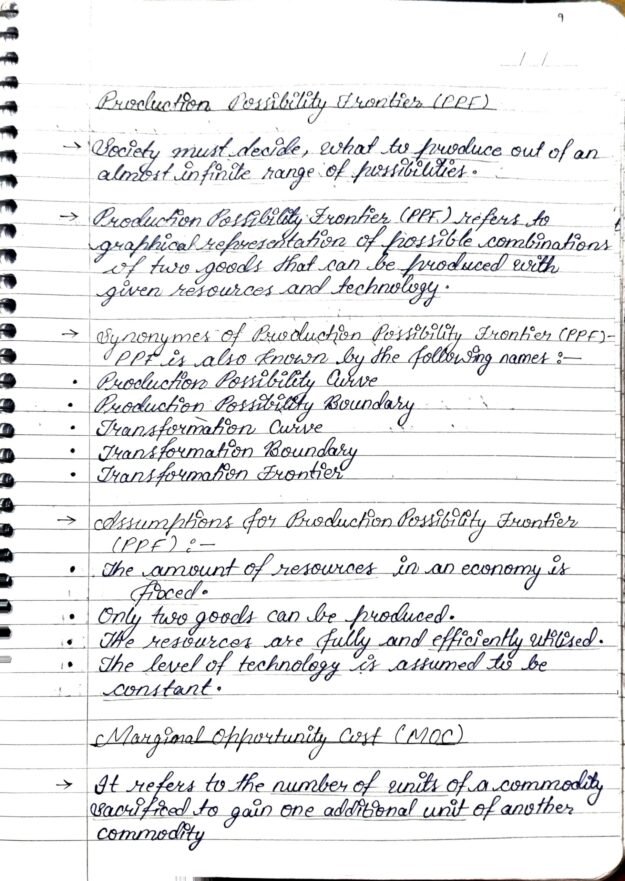 9
/ /
Production Possibility Frontier (PPF)
→ Society must decide, what to produce out of an
almost infinite range of possibilities.
→ Production Possibility Frontier (PPF) refers to
graphical representation of possible combinations
of two goods that can be produced with
given resources and technology.
→ Synonymes of Production Possibility Frontier (PPF)-
PPF is also known by the following names :-
• Production Possibility Curve
• Production Possibility Boundary
• Transformation Curve
• Transformation Boundary
• Transformation Frontier
→ Assumptions for Production Possibility Frontier
(PPF) :-
• The amount of resources in an economy is
fixed.
• Only two goods can be produced.
• The resources are fully and efficiently utilised.
• The level of technology is assumed to be
constant.
Marginal Opportunity Cost (MOC)
→ It refers to the number of units of a commodity
sacrificed to gain one additional unit of another
commodity